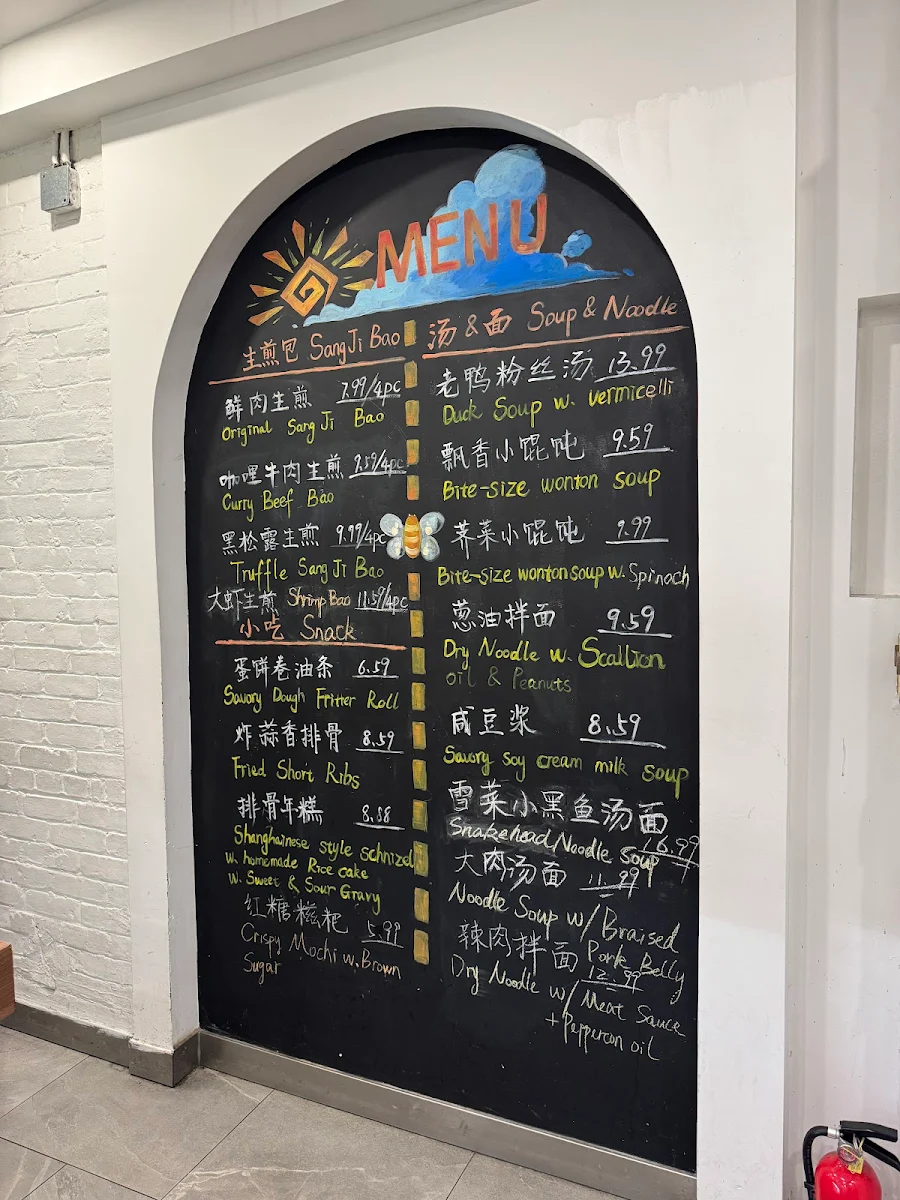 MENU
生煎包 SangJi Bao
鲜肉生煎 7.99/4pc
Original SangJi Bao
咖喱牛肉生煎 9.59/4pc
Curry Beef Bao
黑松露生煎 9.99/4pc
Truffle SangJi Bao
大虾生煎 Shrimp Bao 11.59/4pc
小吃 Snack
蛋饼卷油条 6.59
Savory Dough Fritter Roll
炸蒜香排骨 8.59
Fried Short Ribs
排骨年糕 8.88
Shanghainese style schnizel
w. homemade Rice cake
w. Sweet & Sour Gravy
红糖糍粑 5.99
Crispy Mochi w. Brown
Sugar
汤&面 Soup & Noodle
老鸭粉丝汤 13.99
Duck Soup w. vermicelli
飘香小馄饨 9.59
Bite-size wonton soup
荠菜小馄饨 9.99
Bite-size wonton soup w. Spinach
葱油拌面 9.59
Dry Noodle w. Scallion
oil & Peanuts
咸豆浆 8.59
Savory soy cream milk soup
雪菜小黑鱼汤面
Snakehead Noodle Soup 16.99
大肉汤面 11.99
Noodle Soup w/ Braised
Pork Belly
辣肉拌面 12.99
Dry Noodle w/ Meat Sauce
+ Peppercon oil